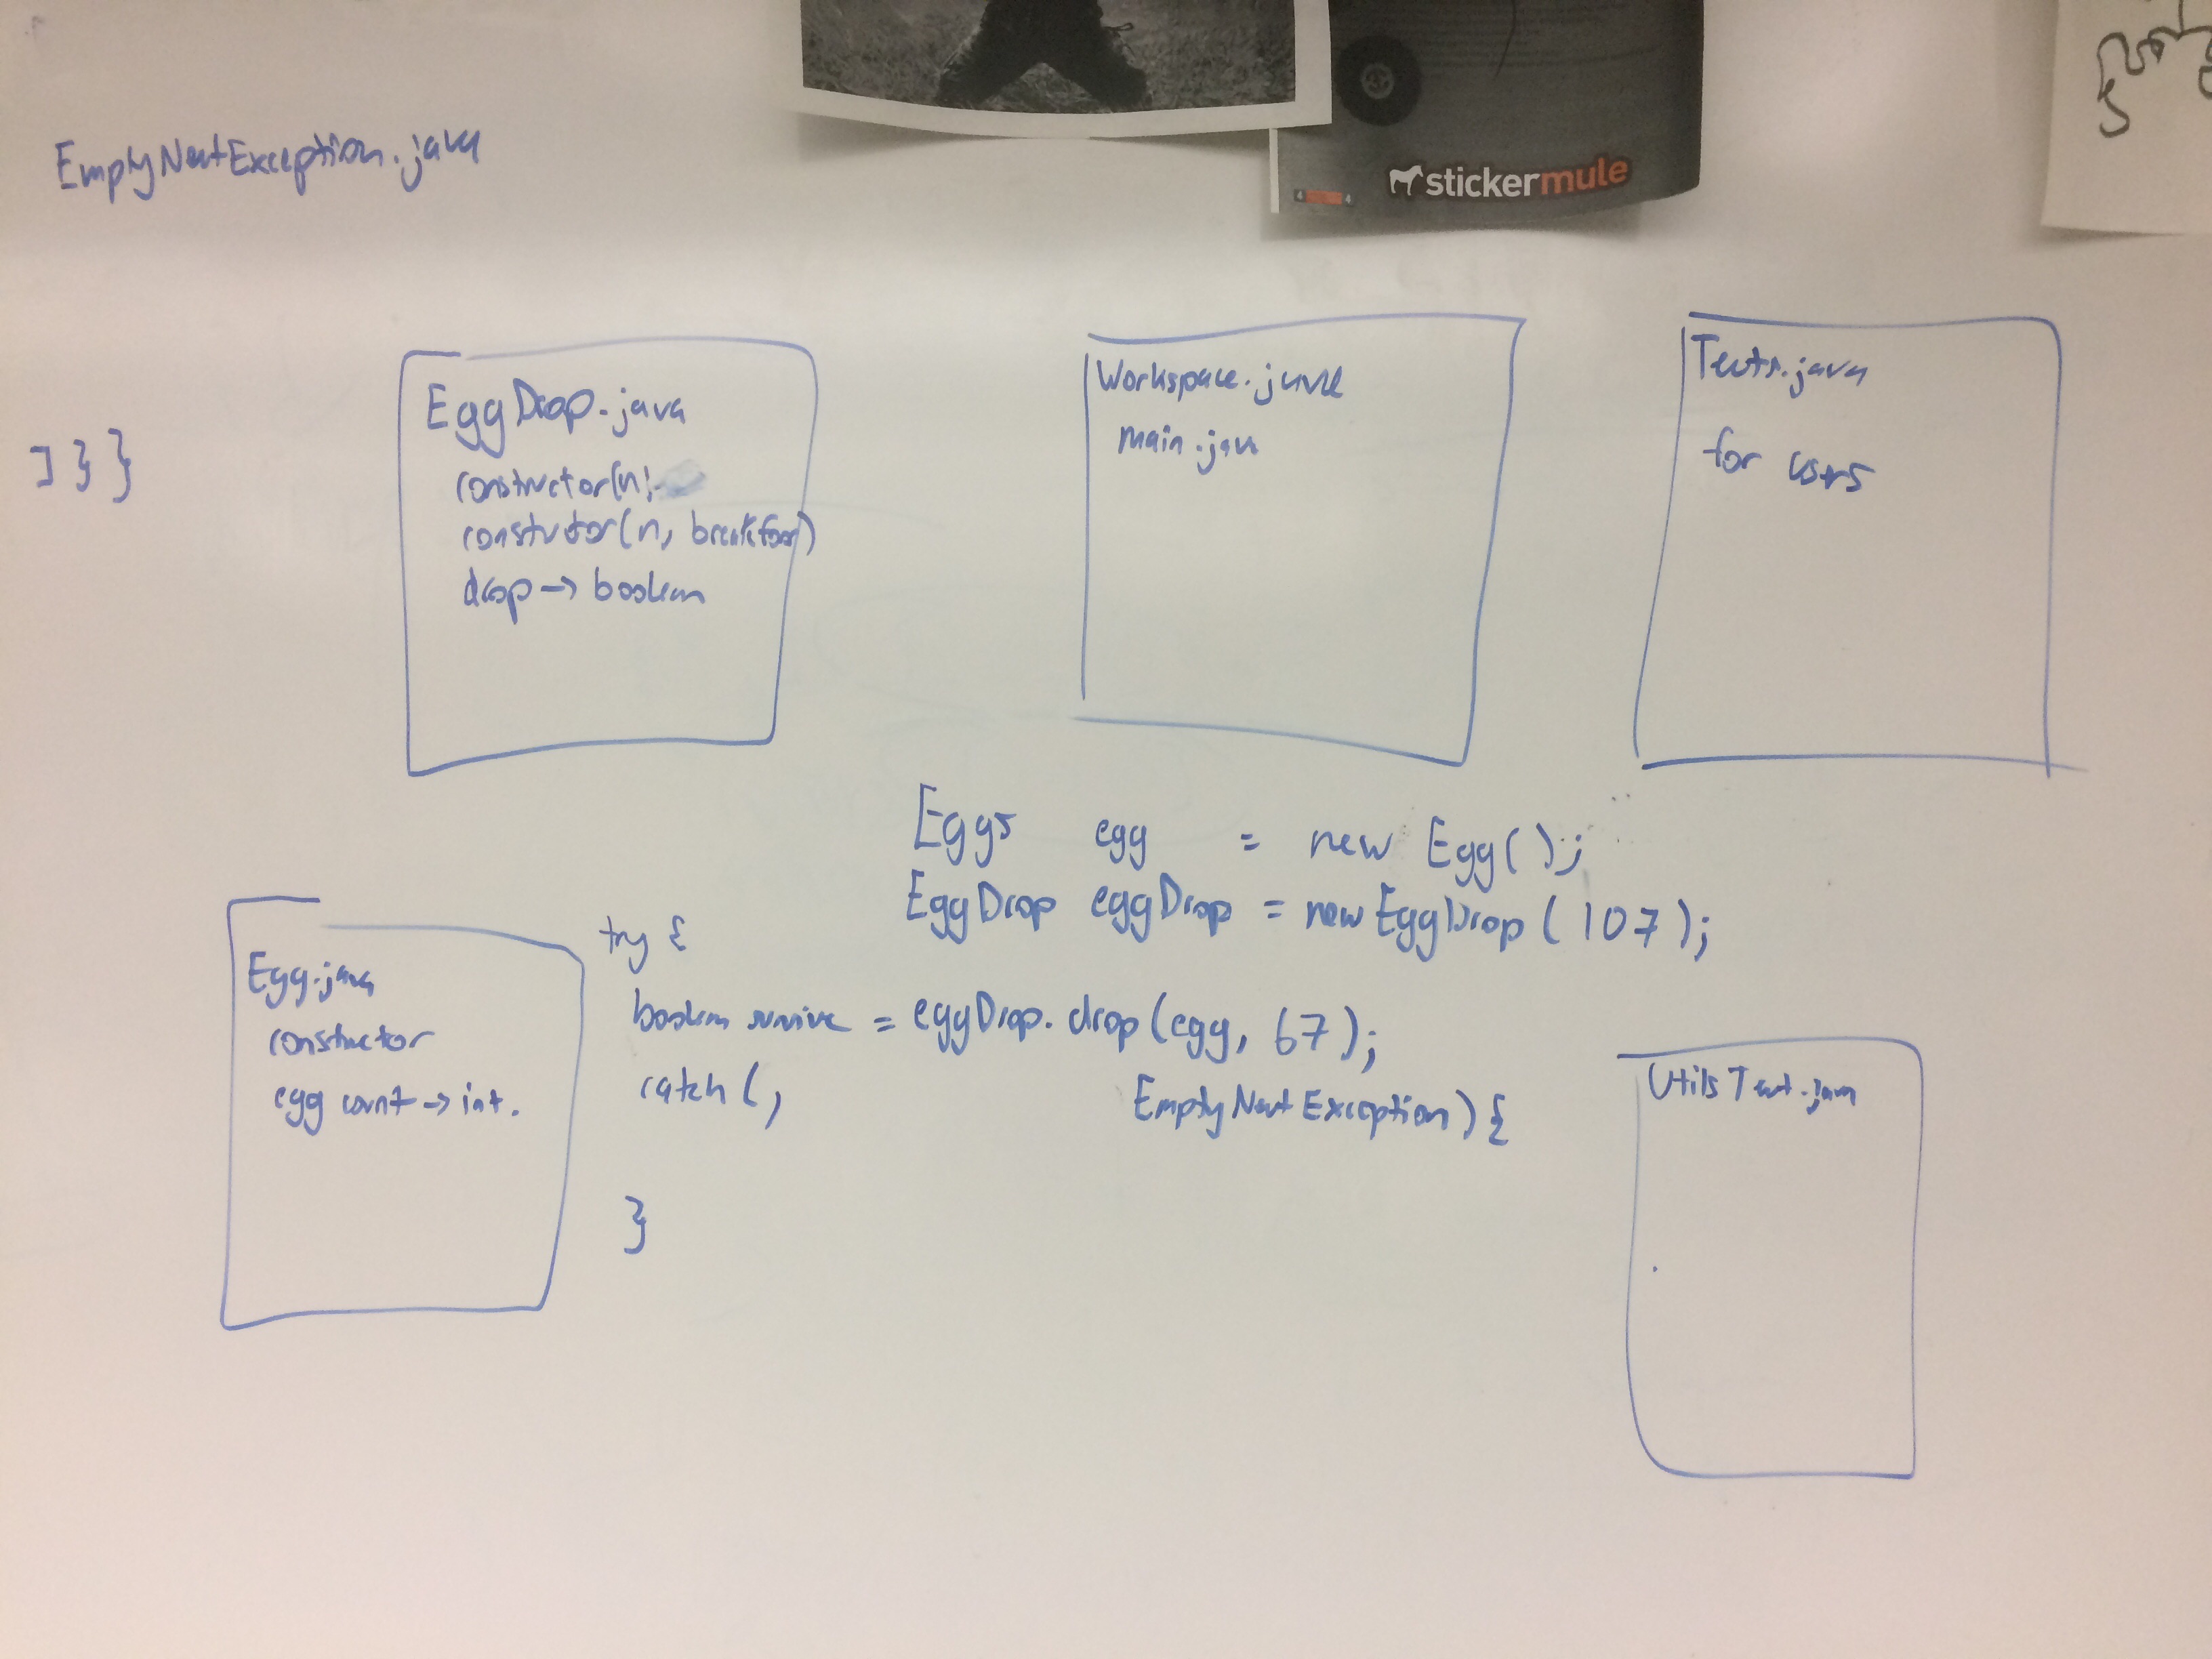 stickermule
EmptyNestException.java
] } }
EggDrop.java
constructor(n)
constutor(n, breakfloor)
drop → boolean
Workspace.java
main.java
Tests.java
for users
Eggs egg = new Egg();
EggDrop eggDrop = new EggDrop(107);
Egg.java
constructor
egg count → int.
try {
boolean survive = eggDrop.drop(egg, 67);
catch(, EmptyNestException) {
}
UtilsTest.java